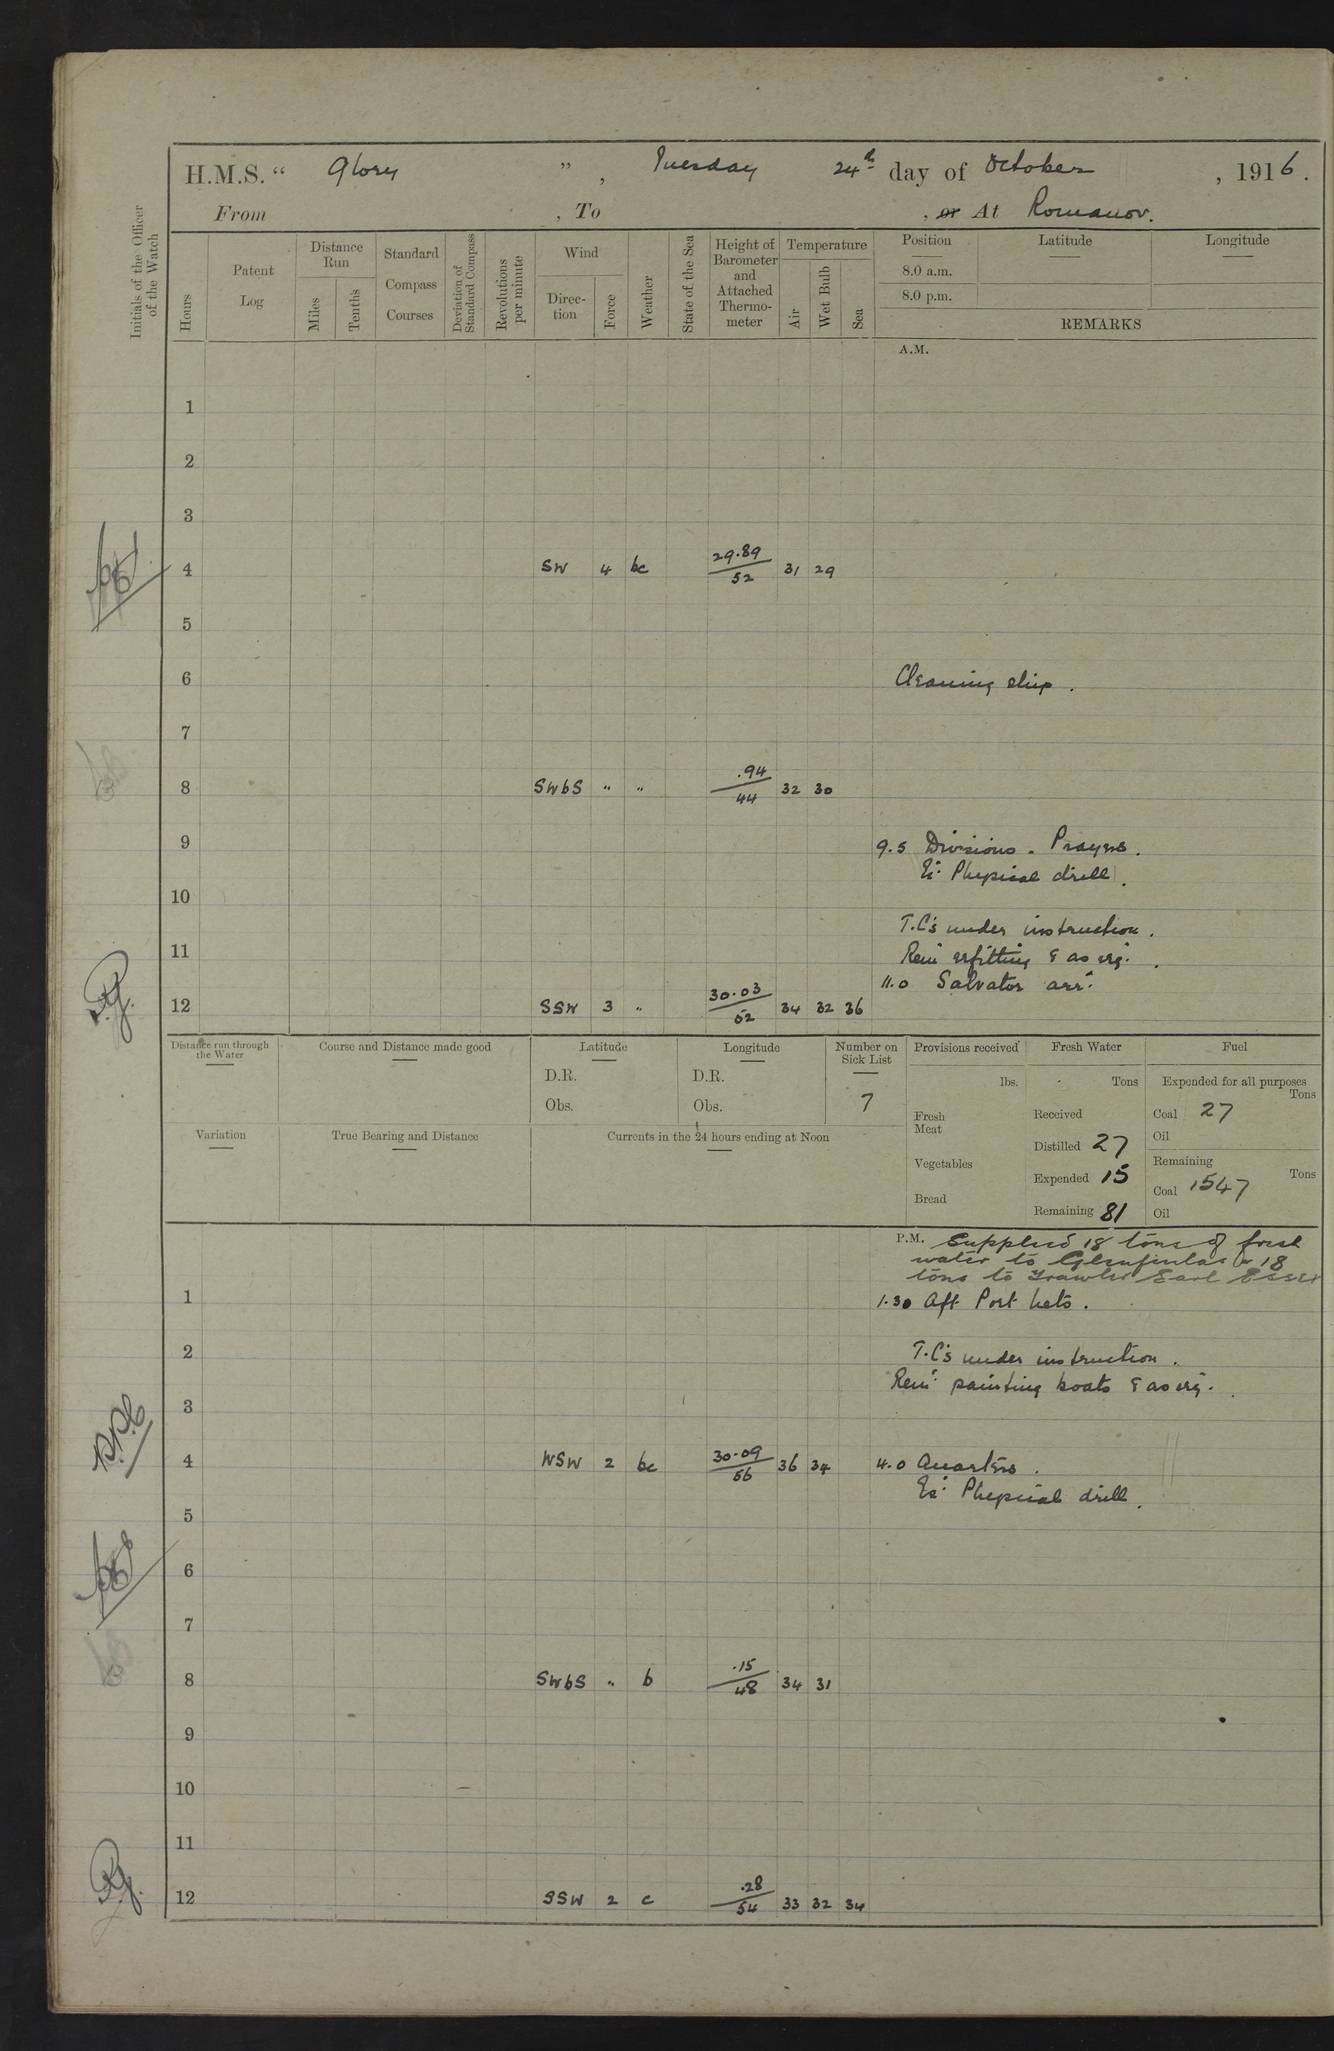 H.M.S. “ Glory ” , Tuesday 24th day of October , 1916.
From , To , or At Romanov.
Initials of the Officer of the Watch
Hours
Patent Log
Distance Run
Miles
Tenths
Standard Compass Courses
Deviation of Standard Compass
Revolutions per minute
Wind
Direc-tion
Force
Weather
State of the Sea
Height of Barometer and Attached Thermo-meter
Temperature
Air
Wet Bulb
Sea
Position
8.0 a.m.
8.0 p.m.
Latitude
Longitude
REMARKS
A.M.
1
2
3
4 SW 4 bc 29.89/52 31 29
5
6 Cleaning ship.
7
8 SWbS " " .94/44 32 30
9 9.5 Divisions. Prayers.
Ex: Physical drill.
10
T.C's under instruction.
11 Rem: refitting & as req:.
11.0 Salvator arr:
12 SSW 3 " 30.03/52 34 32 36
Distance run through the Water
Course and Distance made good
Latitude
D.R.
Obs.
Longitude
D.R.
Obs.
Number on Sick List
7
Provisions received
lbs.
Fresh Meat
Vegetables
Bread
Fresh Water
Tons
Received
Distilled 27
Expended 15
Remaining 81
Fuel
Expended for all purposes
Tons
Coal 27
Oil
Remaining
Tons
Coal 1547
Oil
Variation
True Bearing and Distance
Currents in the 24 hours ending at Noon
P.M. Supplied 18 tons of fresh
water to Glenfinlas & 18
tons to Trawler Earl Essex
1 1.30 Aft Port kets.
2 T.C's under instruction.
Rem: painting boats & as req.
3
4 WSW 2 bc 30.09/56 36 34 4.0 Quarters.
Ex: Physical drill.
5
6
7
8 SWbS " b .15/48 34 31
9
10
11
12 SSW 2 c .28/54 33 32 34